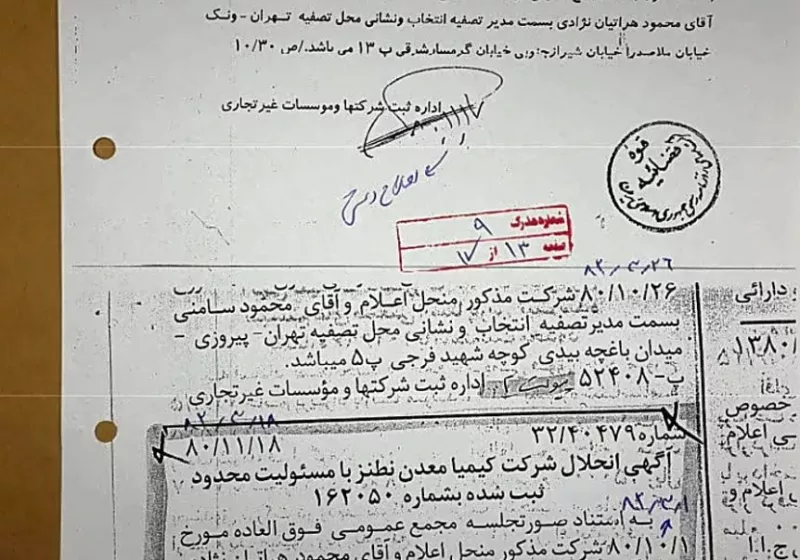 آقای محمود هراتیان نژادی بسمت مدیر تصفیه انتخاب ونشانی محل تصفیه تهران - ونک
خیابان ملاصدرا خیابان شیرازجنوبی خیابان گرمسارشرقی پ ۱۳ می باشد./ص ۱۰/۳۰
اداره ثبت شرکتها وموسسات غیرتجاری
قوه قضائیه
شماره مدرک ۹
صفحه ۱۳ از ۱۷
۸۰/۱۰/۲۶ شرکت مذکور منحل اعلام و آقای محمود سامنی
بسمت مدیرتصفیه انتخاب و نشانی محل تصفیه تهران- پیروزی -
میدان باغچه بیدی کوچه شهید فرجی پ۵ میباشد.
پ-۵۲۴۰۸ اداره ثبت شرکتها و مؤسسات غیرتجاری
دارائی
۱۳۸۰/
خصوص
ی اعلام
اعلام و
شماره ۳۲/۴۰۴۷۹
۸۰/۱۱/۱۸
آگهی انحلال شرکت کیمیا معدن نطنز با مسئولیت محدود
ثبت شده بشماره ۱۶۲۰۵۰
به استناد صورتجلسه مجمع عمومی فوق العاده مورخ
۸۰/۱۰/۱ شرکت مذکور منحل اعلام و آقای محمود هراتیان نژاد